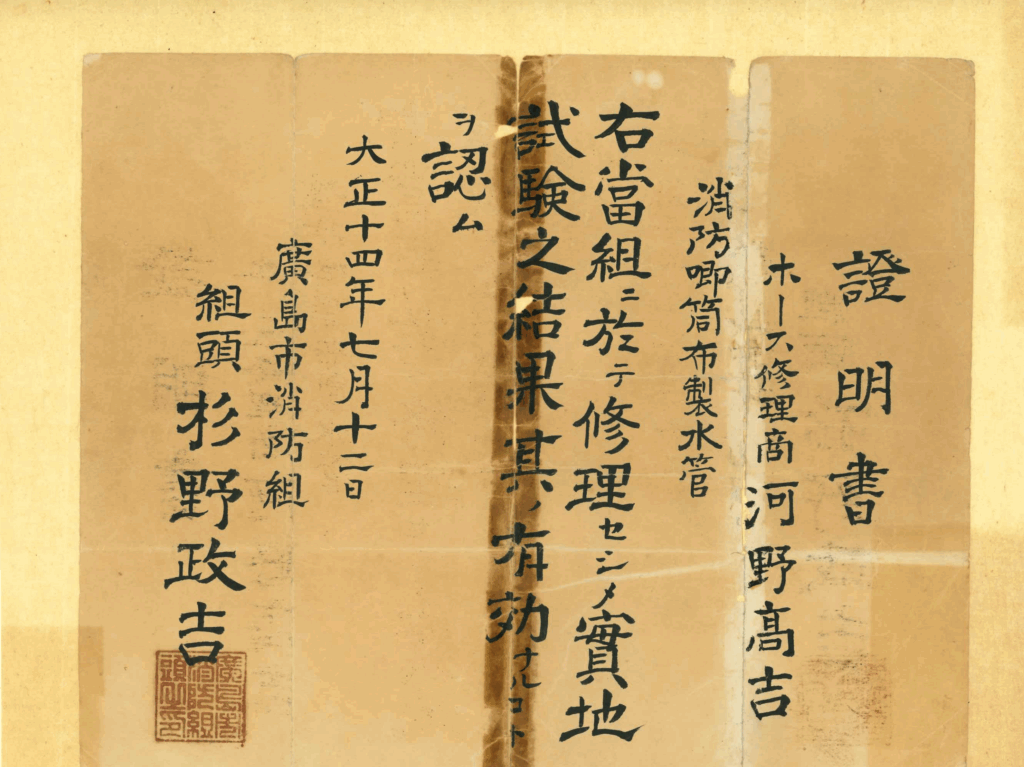 證明書
ホース修理商 河野高吉
消防喞筒布製水管
右當組ニ於テ修理セシメ實地
試験之結果其ノ有効ナルコト
ヲ認ム
大正十四年七月十二日
廣島市消防組
組頭 杉野政吉
廣島市
消防組
頭之印